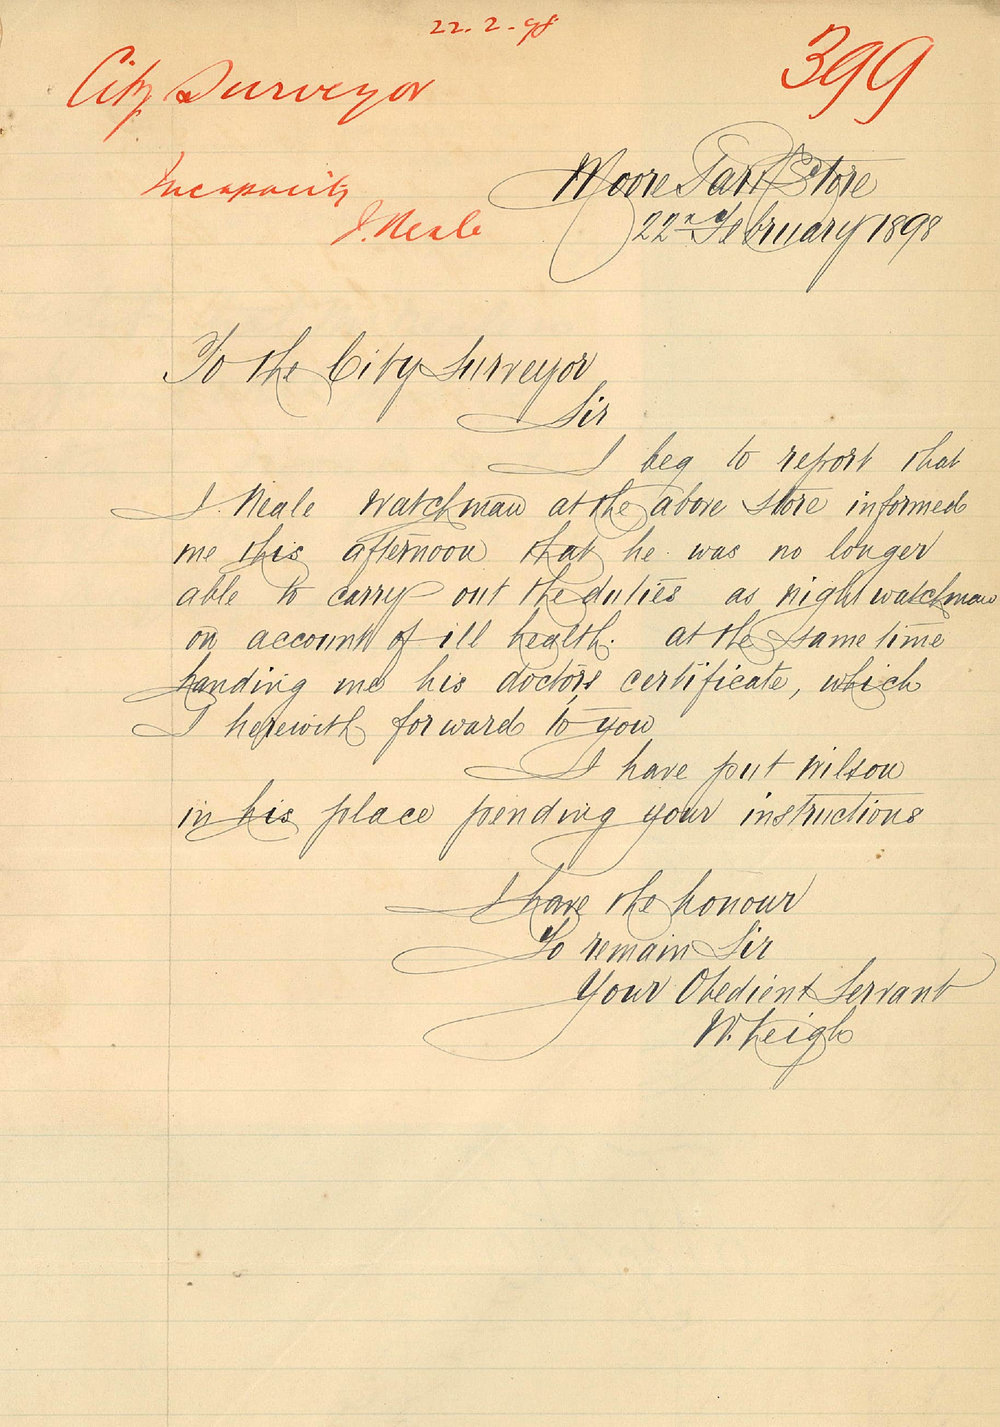 22. 2. 98
399
City Surveyor
Incapacity
J. Neale
Moore Park Store
22nd February 1898
To the City Surveyor
Sir
I beg to report that
J. Neale Watchman at the above Store informed
me this afternoon that he was no longer
able to carry out the duties as night watchman
on account of ill health. at the same time
handing me his doctors certificate, which
I herewith forward to you
I have put Wilson
in his place pending your instructions
I have the honour
To remain Sir
Your Obedient Servant
W. Leigh